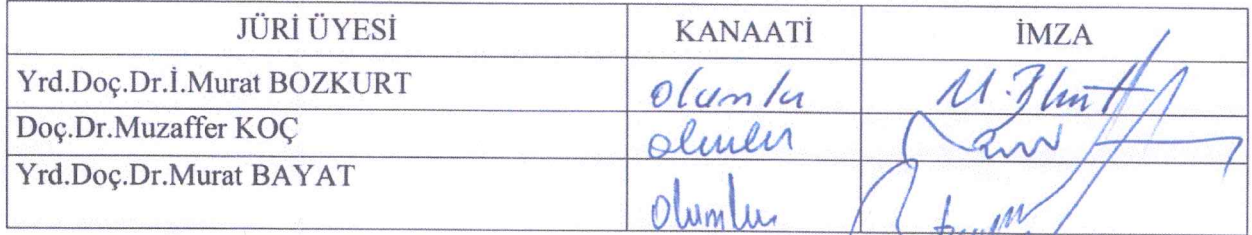 JÜRİ ÜYESİ KANAATİ İMZA
Yrd.Doç.Dr.İ.Murat BOZKURT olumlu
Doç.Dr.Muzaffer KOÇ olumlu
Yrd.Doç.Dr.Murat BAYAT olumlu